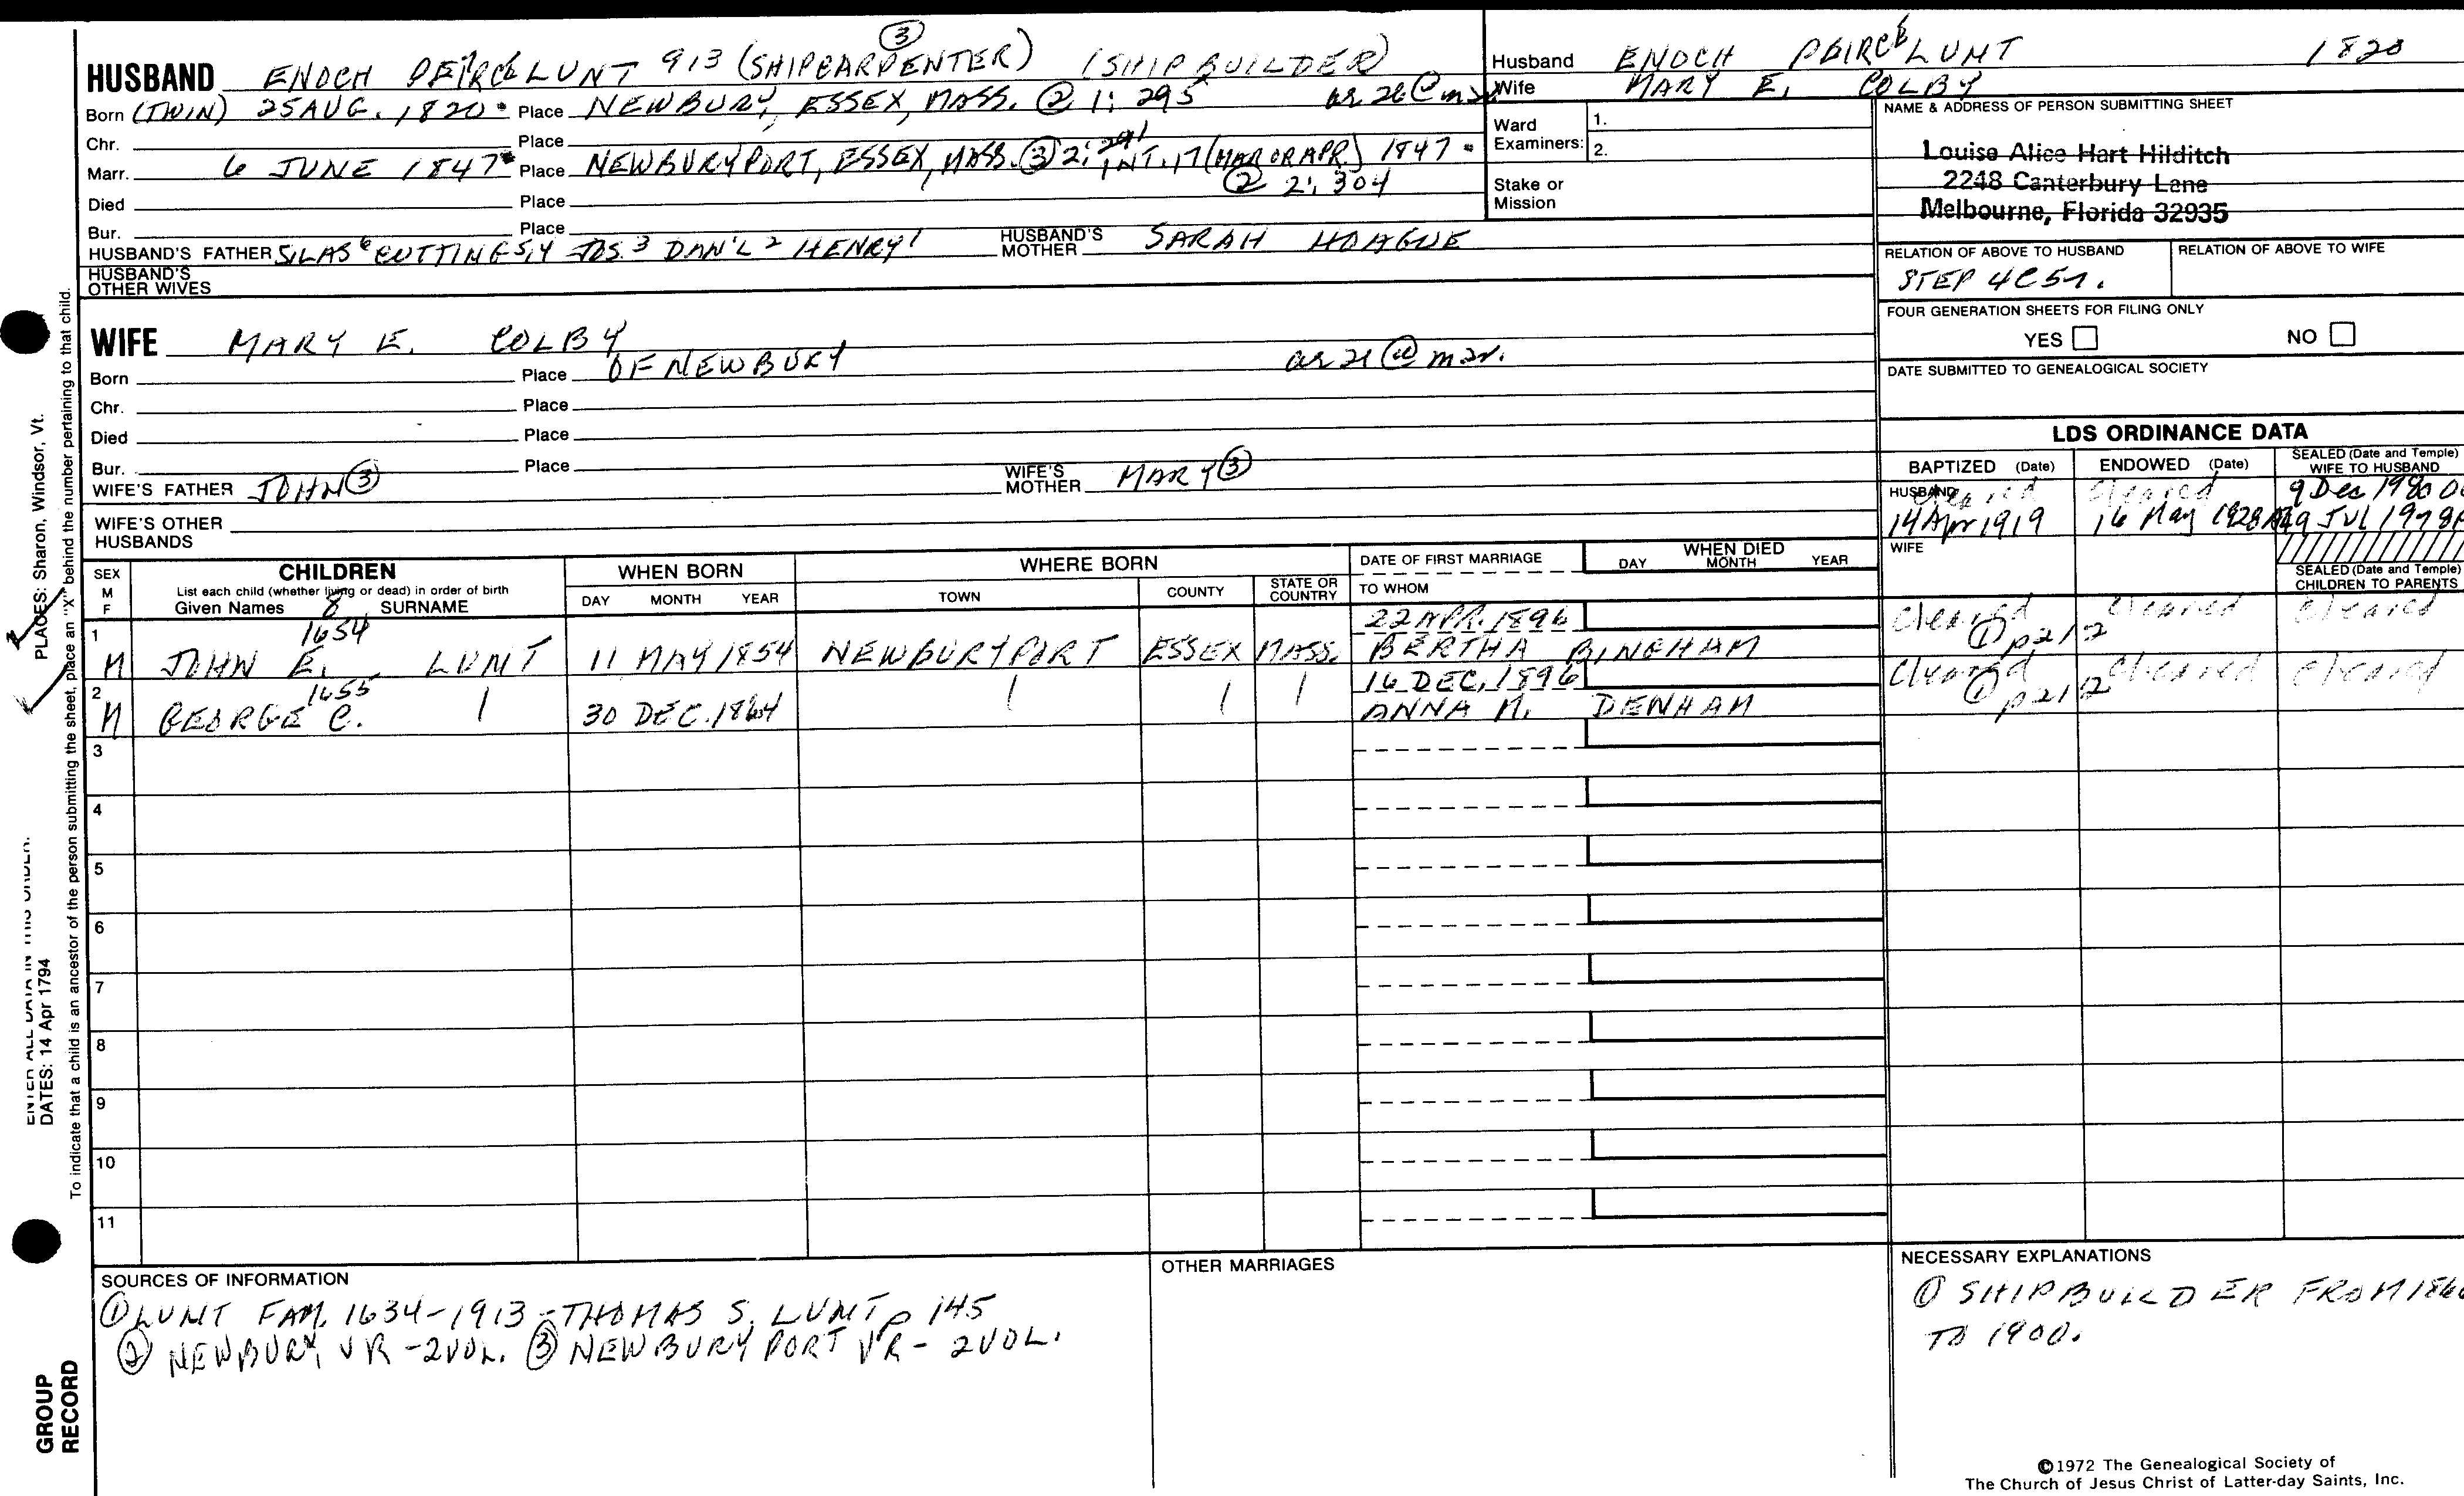 ③
HUSBAND ENOCH PEIRCE LUNT 913 (SHIPCARPENTER) (SHIP BUILDER)
Born (TWIN) 25 AUG. 1820 Place NEWBURY, ESSEX, MASS. ② 1: 295
Chr. Place
Marr. 6 JUNE 1847 Place NEWBURYPORT, ESSEX, MASS. ③ 2: 291 INT. 17 (MAR OR APR.) 1847
② 2: 304
Died Place
Bur. Place
HUSBAND'S FATHER SILAS 6 CUTTING 5,4 JOS. 3 DAN'L 2 HENRY 1 HUSBAND'S MOTHER SARAH HOAGUE
HUSBAND'S OTHER WIVES
WIFE MARY E. COLBY
Born Place OF NEWBURY as 21 @ mar.
Chr. Place
Died Place
Bur. Place
WIFE'S FATHER JOHN ③ WIFE'S MOTHER MARY ③
WIFE'S OTHER HUSBANDS
Husband ENOCH PEIRCE LUNT 1820
Wife MARY E. COLBY
Ward Examiners: 1.
2.
Stake or Mission
NAME & ADDRESS OF PERSON SUBMITTING SHEET
Louise Alice Hart Hilditch
2248 Canterbury Lane
Melbourne, Florida 32935
RELATION OF ABOVE TO HUSBAND RELATION OF ABOVE TO WIFE
STEP 4C5R.
FOUR GENERATION SHEETS FOR FILING ONLY
YES NO
DATE SUBMITTED TO GENEALOGICAL SOCIETY
LDS ORDINANCE DATA
BAPTIZED (Date) ENDOWED (Date) SEALED (Date and Temple) WIFE TO HUSBAND
HUSBAND cleared cleared 9 Dec 1980
14 Apr 1919 16 May 1928 19 JUL 1978
WIFE
SEALED (Date and Temple) CHILDREN TO PARENTS
SEX M F
CHILDREN
List each child (whether living or dead) in order of birth
Given Names 8 SURNAME
WHEN BORN
DAY MONTH YEAR
WHERE BORN
TOWN COUNTY STATE OR COUNTRY
DATE OF FIRST MARRIAGE
TO WHOM
WHEN DIED
DAY MONTH YEAR
1 1654 22 APR. 1896 cleared cleared cleared
M JOHN E. LUNT 11 MAY 1854 NEWBURYPORT ESSEX MASS. BERTHA BINGHAM ① p212
2 1655 16 DEC. 1896 cleared cleared cleared
M GEORGE C. 30 DEC. 1864 ANNA M. DENHAM ① p212
3
4
5
6
7
8
9
10
11
SOURCES OF INFORMATION
① LUNT FAM. 1634-1913 - THOMAS S. LUNT p 145
② NEWBURY VR - 2 VOL. ③ NEWBURYPORT VR - 2 VOL.
OTHER MARRIAGES
NECESSARY EXPLANATIONS
① SHIPBUILDER FROM
TO 1900.
©1972 The Genealogical Society of
The Church of Jesus Christ of Latter-day Saints, Inc.
PLACES: Sharon, Windsor, Vt.
ENTER ALL DATA IN THIS ORDER:
DATES: 14 Apr 1794
To indicate that a child is an ancestor of the person submitting the sheet, place an "X" behind the number pertaining to that child.
GROUP
RECORD